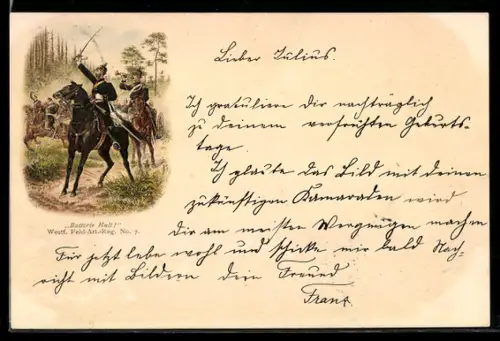 Lieber Julius.
Ich gratuliere Dir nachträglich
zu deinem verfrühten Geburts-
tage.
Ich glaube das Bild mit deinen
zukünftigen Kamaraden wird
Dir am meisten Vergnügen machen
Für jetzt lebe wohl und schicke mir bald Nach-
richt mit Bildern dein Freund
Franz
„Batterie Halt!"
Westf. Feld-Art.-Reg. No. 7.